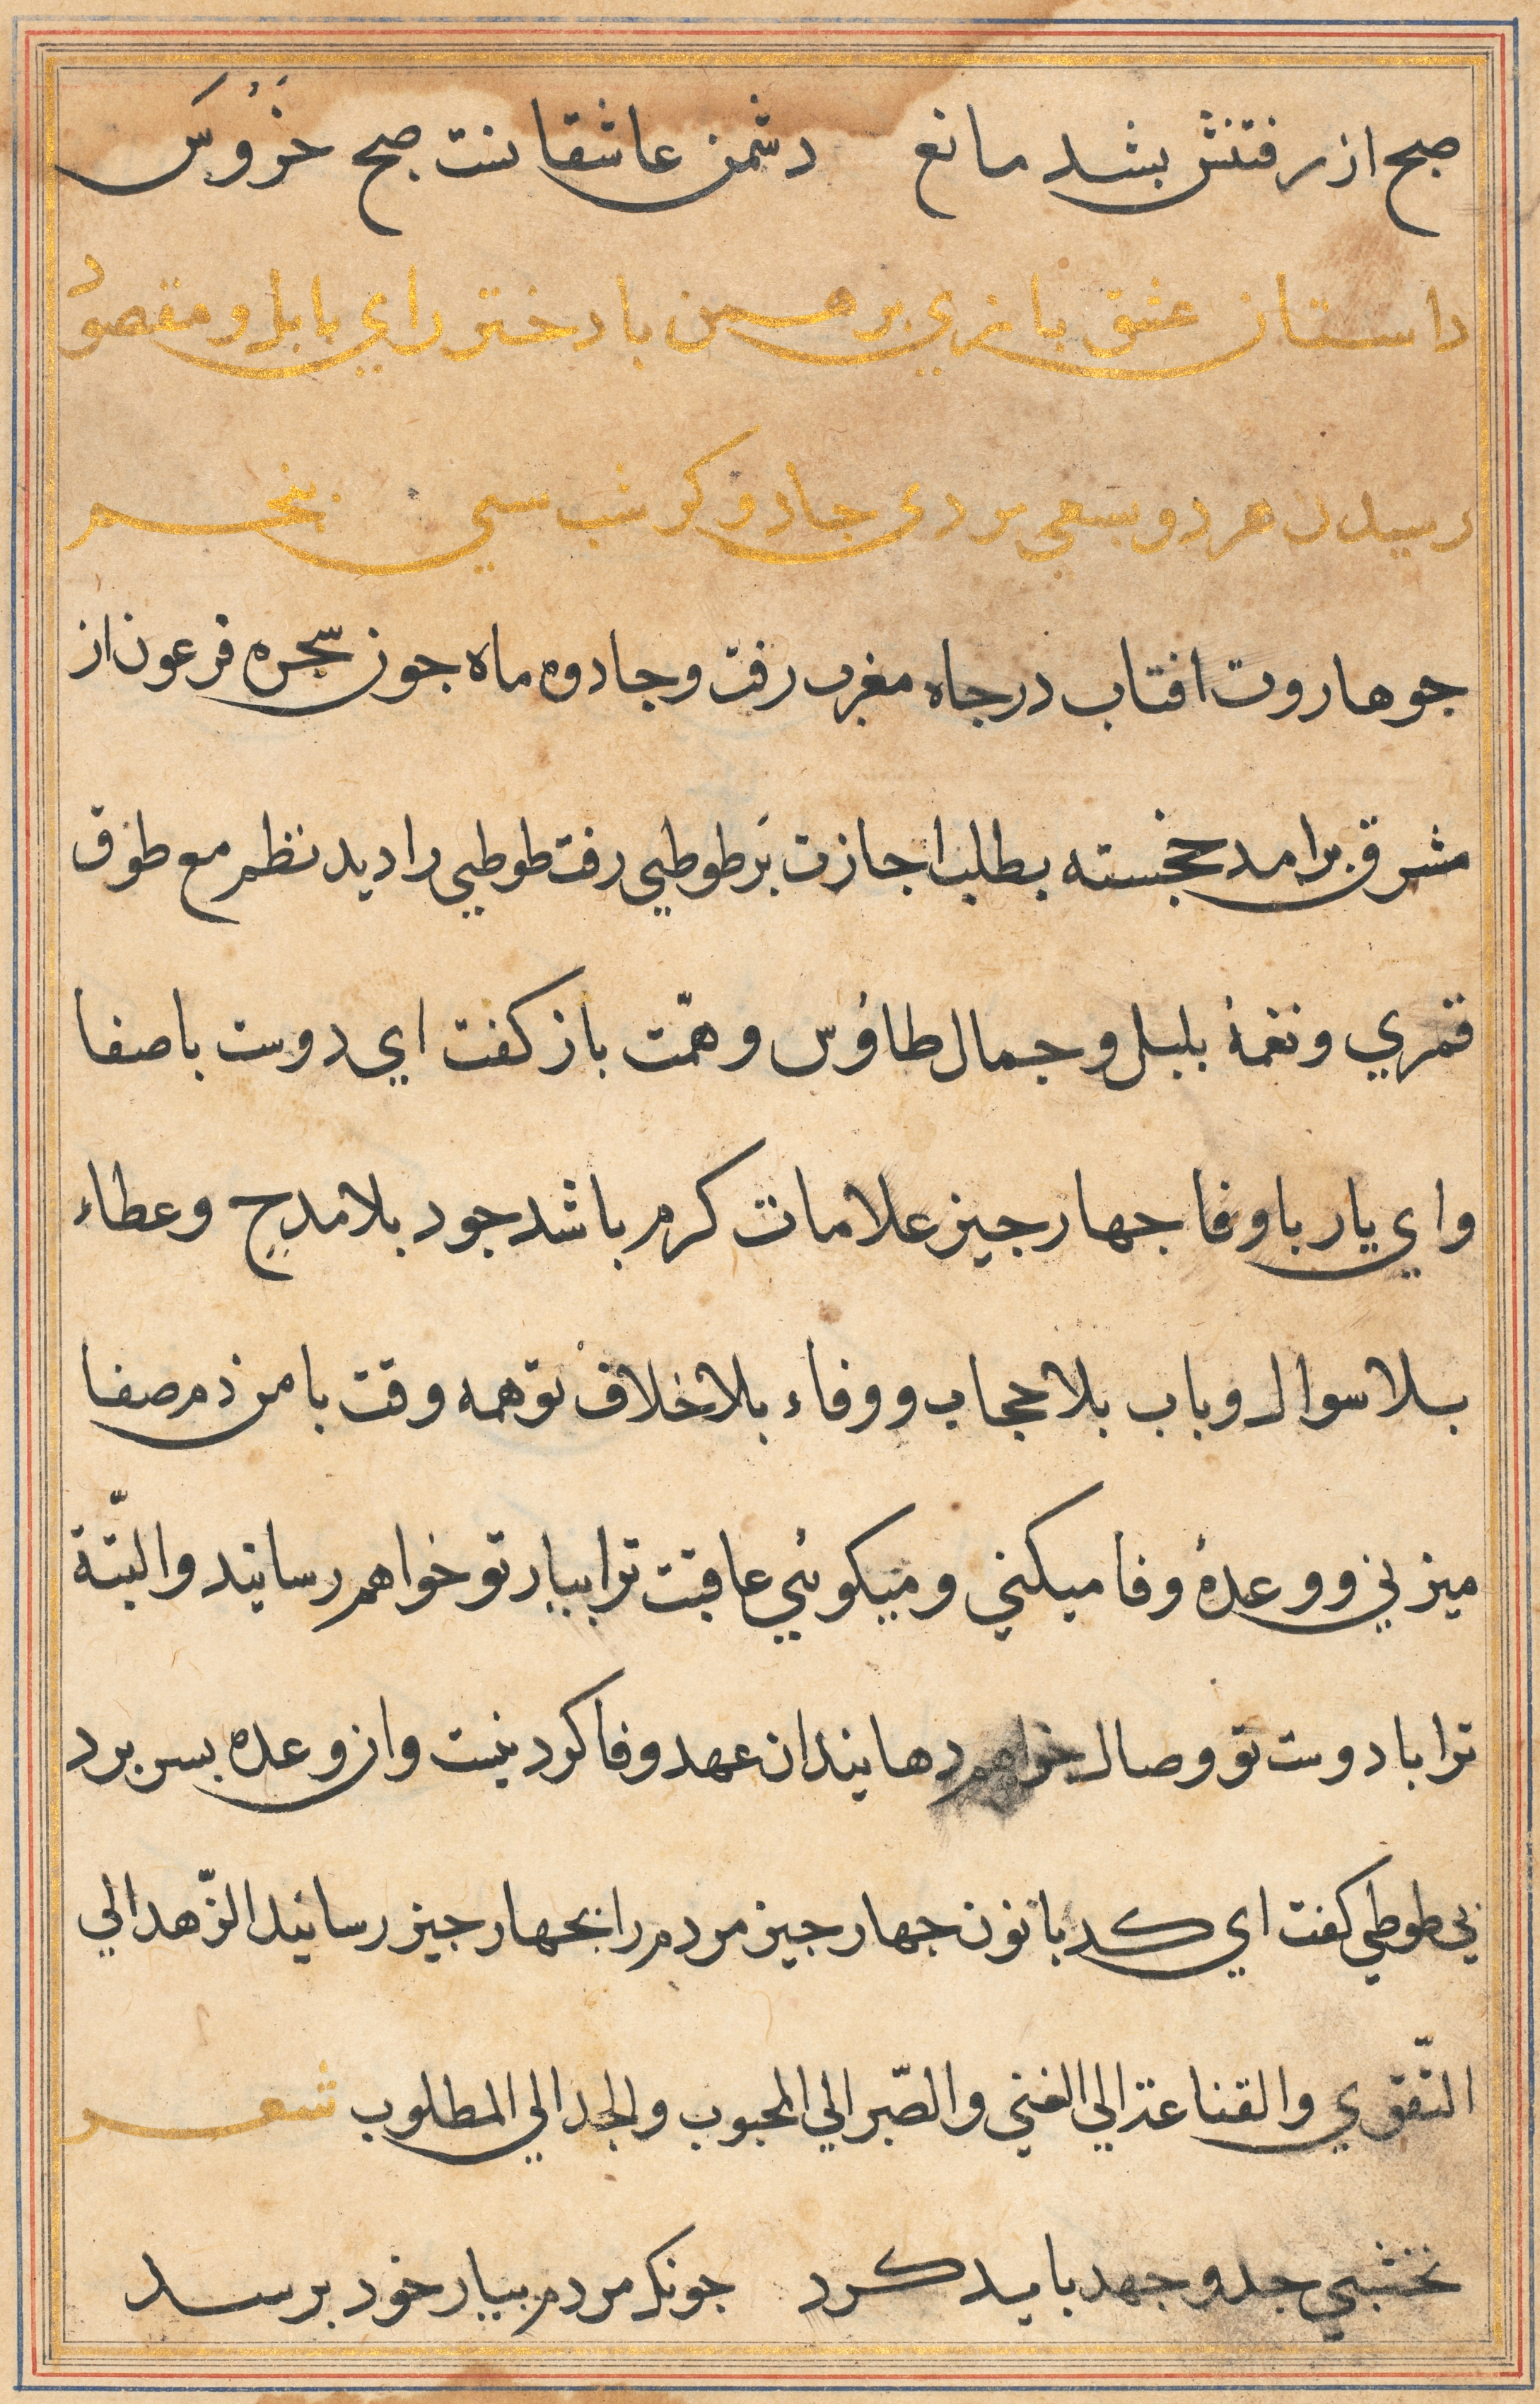 صبح از رفتنش بشد مانع دشمن عاشقانست صبح خَرُوَس
داستان عشق بازي برهمن با دختر راي بابل و مقصود
رسيدن هر دو بسعي مردي جادوكر شب سي پنجم
جو هاروت افتاب در جاه مغرب رفت و جادوه ماه جون سحره فرعون از
مشرق برامد خجسته بطلب اجازت بَر طوطي رفت طوطي را ديد نظم مع طوق
قمري و نغمۀ بلبل و جمال طاؤس و همّت باز كفت اي دوست باصفا
و اي يار باوفا جهار جيز علامات كرم باشد جود بلا مدح و عطاء
بلا سوال و باب بلا حجاب و وفاء بلا خلاف تو همه وقت با من ذم صفا
ميزني و وعدۀ وفا ميكني و ميكوئي عاقبت ترا بيار تو خواهم رسانيد و البتّة
ترا با دوست تو وصال خواهم دهانيد ان عهد وفا كردينست و ان وعده بسر برد
ني طوطي كفت اي كدبانون جهار جيز مردم را بجهار جيز رسانيد الزّهد الي
التّقوي و القناعة الي الغني و الصّبر الي المحبوب و الجد الي المطلوب شعر
نخشبي جد و جهد بايد كرد جونكه مردم بيار خود برسد